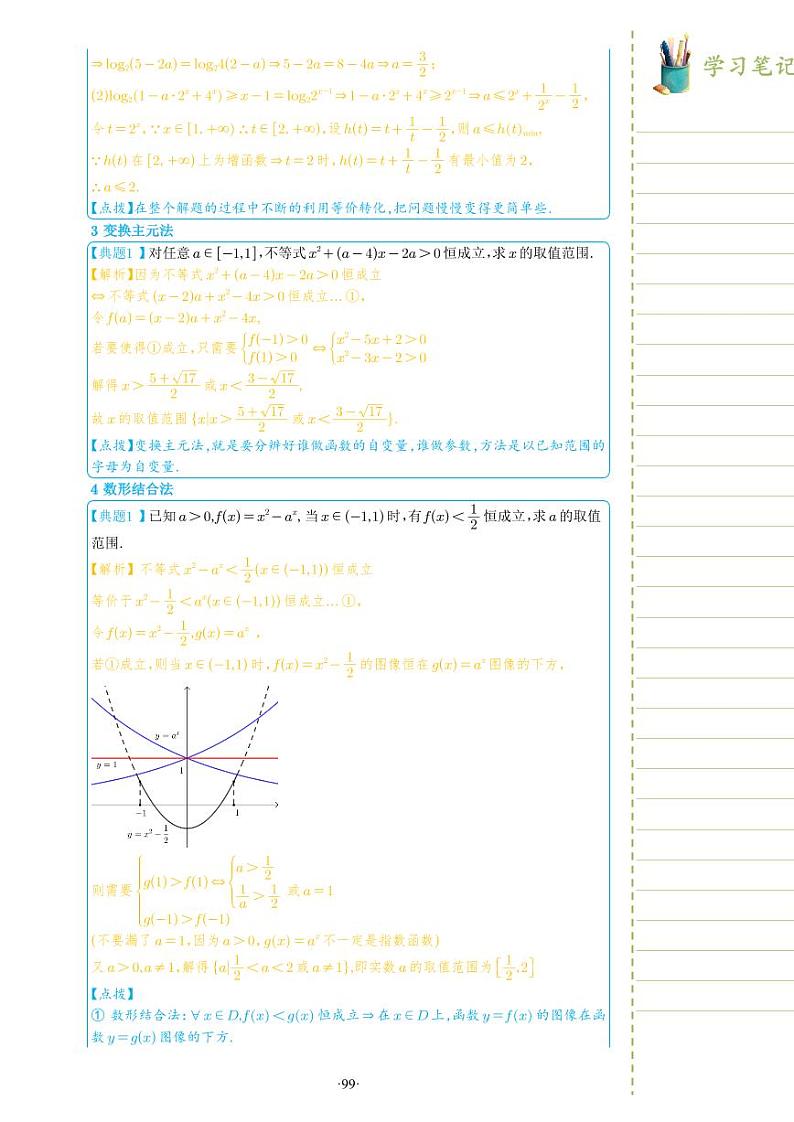 ⇒log₂(5－2a)＝log₂4(2－a)⇒5－2a＝8－4a⇒a＝3/2；
学习笔记
(2)log₂(1－a·2ˣ＋4ˣ)⩾x－1＝log₂2ˣ⁻¹⇒1－a·2ˣ＋4ˣ⩾2ˣ⁻¹⇒a⩽2ˣ＋1/2ˣ－1/2，
令t＝2ˣ，∵x∈[1,＋∞)∴t∈[2,＋∞)，设h(t)＝t＋1/t－1/2，则a⩽h(t)ₘᵢₙ，
∵h(t)在[2,＋∞)上为增函数⇒t＝2时，h(t)＝t＋1/t－1/2有最小值为2，
∴a⩽2.
【点拨】在整个解题的过程中不断的利用等价转化，把问题慢慢变得更简单些.
3 变换主元法
【典题1】对任意a∈[－1,1]，不等式x²＋(a－4)x－2a＞0恒成立，求x的取值范围.
【解析】因为不等式x²＋(a－4)x－2a＞0恒成立
⇔不等式(x－2)a＋x²－4x＞0恒成立…①，
令f(a)＝(x－2)a＋x²－4x,
若要使得①成立，只需要{f(－1)＞0 f(1)＞0 ⇔{x²－5x＋2＞0 x²－3x－2＞0
解得x＞(5＋√17)/2或x＜(3－√17)/2,
故x的取值范围{x|x＞(5＋√17)/2或x＜(3－√17)/2}.
【点拨】变换主元法，就是要分辨好谁做函数的自变量，谁做参数，方法是以已知范围的
字母为自变量.
4 数形结合法
【典题1】已知a＞0,f(x)＝x²－aˣ, 当x∈(－1,1)时，有f(x)＜1/2恒成立，求a的取值
范围.
【解析】不等式x²－aˣ＜1/2(x∈(－1,1))恒成立
等价于x²－1/2＜aˣ(x∈(－1,1))恒成立…①，
令f(x)＝x²－1/2,g(x)＝aˣ，
若①成立，则当x∈(－1,1)时，f(x)＝x²－1/2的图像恒在g(x)＝aˣ图像的下方，
y＝aˣ
y＝1
1
－1
1
y＝x²－1/2
则需要{g(1)＞f(1) g(－1)＞f(－1) ⇔{a＞1/2 1/a＞1/2 或a＝1
(不要漏了a＝1，因为a＞0，g(x)＝aˣ不一定是指数函数)
又a＞0,a≠1，解得{a|1/2＜a＜2或a≠1}，即实数a的取值范围为[1/2,2]
【点拨】
① 数形结合法：∀x∈D,f(x)＜g(x)恒成立⇒在x∈D上，函数y＝f(x)的图像在函
数y＝g(x)图像的下方.
·99·